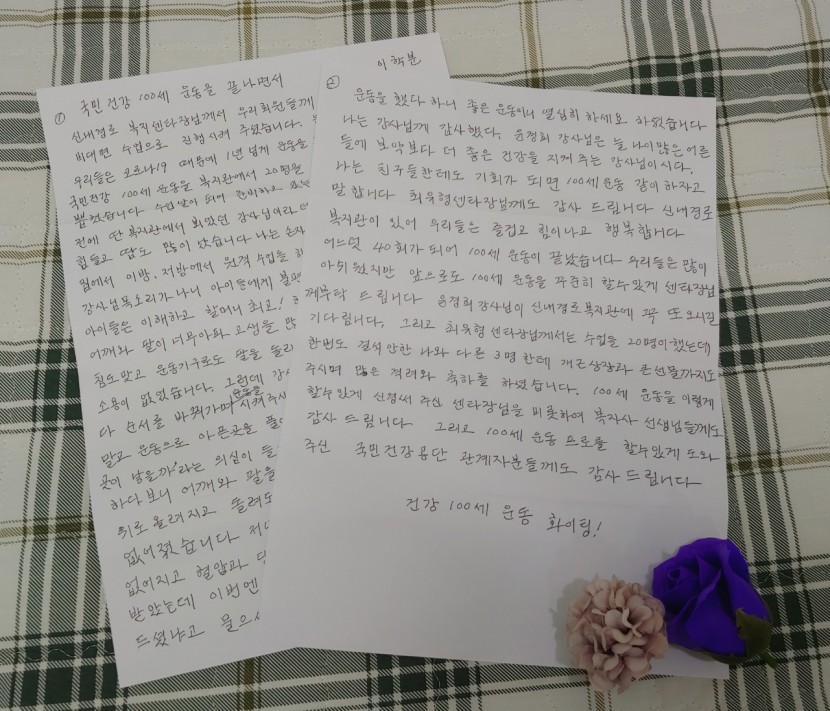 국민건강 100세 운동을 끝나면서
①
신내경로 복지센타장님께서 우리회원들께
비대면 수업으로 진행시켜 주셨습니다.
우리들은 코로나19 때문에 1년 넘게 운동을
국민건강 100세 운동을 복지관에서 20명을
뽑았습니다
전에 딴 복지관에서 뵈었던 강사님이라
힘들고 땀도 많이 났습니다 나는 손자
집에서 이방, 저방에서 원격 수업을 하
강사님목소리가 나니 아이들에게 불편
아이들은 이해하고 할머니 최고!
어깨와 팔이 너무아파 고생을 많
침도맞고 운동기구로도 팔을 돌리
소용이 없었습니다. 그런데 강사
다 순서를 바꿔가며 운동을 시켜주시
말고 운동으로 아픈곳을 풀어
곳이 낳을까'라는 의심이 들
하다보니 어깨와 팔을
뒤로 올려지고 돌려도
없어졌습니다
없어지고 혈압과 당
받았는데 이번엔
드셨냐고 물으시
이학분
②
운동을 했다 하니 좋은 운동이니 열심히 하세요 하였습니다
나는 강사님께 감사했다. 윤경희 강사님은 늘 나이많은어른
들에 보약보다 더 좋은 건강을 지켜 주는 강사님이시다.
나는 친구들한테도 기회가 되면 100세운동 같이 하자고
말 합니다 최유형센타장님께도 감사 드립니다 신내경로
복지관이 있어 우리들은 즐겁고 힘이나고 행복합니다
어느덧 40회가 되어 100세 운동이 끝났습니다 우리들은 많이
아쉬웠지만 앞으로도 100세 운동을 꾸준히 할수있게 센타장님
께부탁 드립니다 윤경희 강사님이 신내경로복지관에 꼭 또오시길
기다립니다. 그리고 최유형 센타장님께서는 수업을 20명이했는데
한번도 결석 안한 나와 다른 3명 한테 개근상장과 큰선물까지도
주시며 많은 격려와 축하를 하였습니다. 100세 운동을 이렇게
할수있게 신경써 주신 센타장님을 비롯하여 복지사 선생님들께도
감사 드립니다. 그리고 100세 운동 프로를 할수있게 도와
주신 국민건강공단 관계자분들께도 감사 드립니다
건강 100세 운동 화이팅!